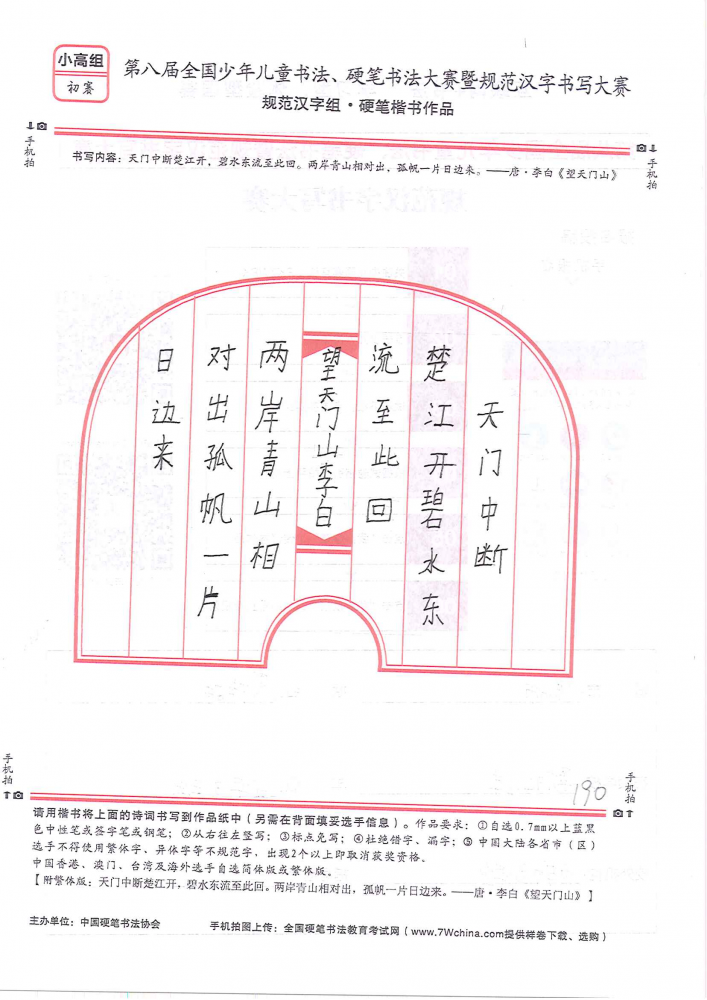 小高组
初赛
第八届全国少年儿童书法、硬笔书法大赛暨规范汉字书写大赛
规范汉字组·硬笔楷书作品
手机拍
手机拍
书写内容：天门中断楚江开，碧水东流至此回。两岸青山相对出，孤帆一片日边来。——唐·李白《望天门山》
天门中断
楚江开碧水东
流至此回
望天门山李白
两岸青山相
对出孤帆一片
日边来
190
手机拍
手机拍
请用楷书将上面的诗词书写到作品纸中（另需在背面填妥选手信息）。作品要求：①自选0.7mm以上蓝黑
色中性笔或签字笔或钢笔；②从右往左竖写；③标点免写；④杜绝错字、漏字；⑤中国大陆各省市（区）
选手不得使用繁体字、异体字等不规范字，出现2个以上即取消获奖资格。
中国香港、澳门、台湾及海外选手自选简体版或繁体版。
【附繁体版：天门中断楚江开，碧水东流至此回。两岸青山相对出，孤帆一片日边来。——唐·李白《望天门山》】
主办单位：中国硬笔书法协会
手机拍图上传：全国硬笔书法教育考试网（www.7Wchina.com提供样卷下载、选购）